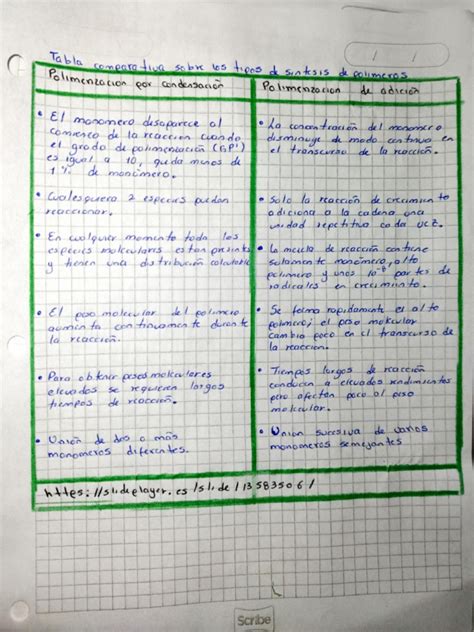 Tabla comparativa sobre los tipos de sintesis de polimeros
Polimerizacion por condensación
• El monomero desaparece al
comienzo de la reaccion cuando
el grado de polimerización (GP)
es igual a 10, queda menos de
1% de monómero.
• Cualesquiera 2 especies pueden
reaccionar.
• En cualquier momento todas las
especies moleculares están presentes
y tienen una distribución calculable
• El peso molecular del polimero
aumenta continuamente durante
la reacción.
• Para obtener pesos moleculares
elevados se requieren largos
tiempos de reacción.
• Unión de dos o más
monomeros diferentes.
Polimerizacion de adición
• La concentración del monomero
disminuye de modo continuo en
el transcurso de la reacción.
• Solo la reacción de crecimiento
adiciona a la cadena una
unidad repetitiva cada vez.
• La mezcla de reacción contiene
solamente monómero, alto
polimero y unos 10⁻⁸ partes de
radicales en crecimiento.
• Se forma rapidamente el alto
polimero; el peso molecular
cambia poco en el transcurso de
la reacción.
• Tiempos largos de reacción
conducen a elevados rendimientos
pero afectan poco al peso
molecular.
• Union sucesiva de varios
monomeros semejantes
https://slideplayer.es/slide/13583506/
Scribe